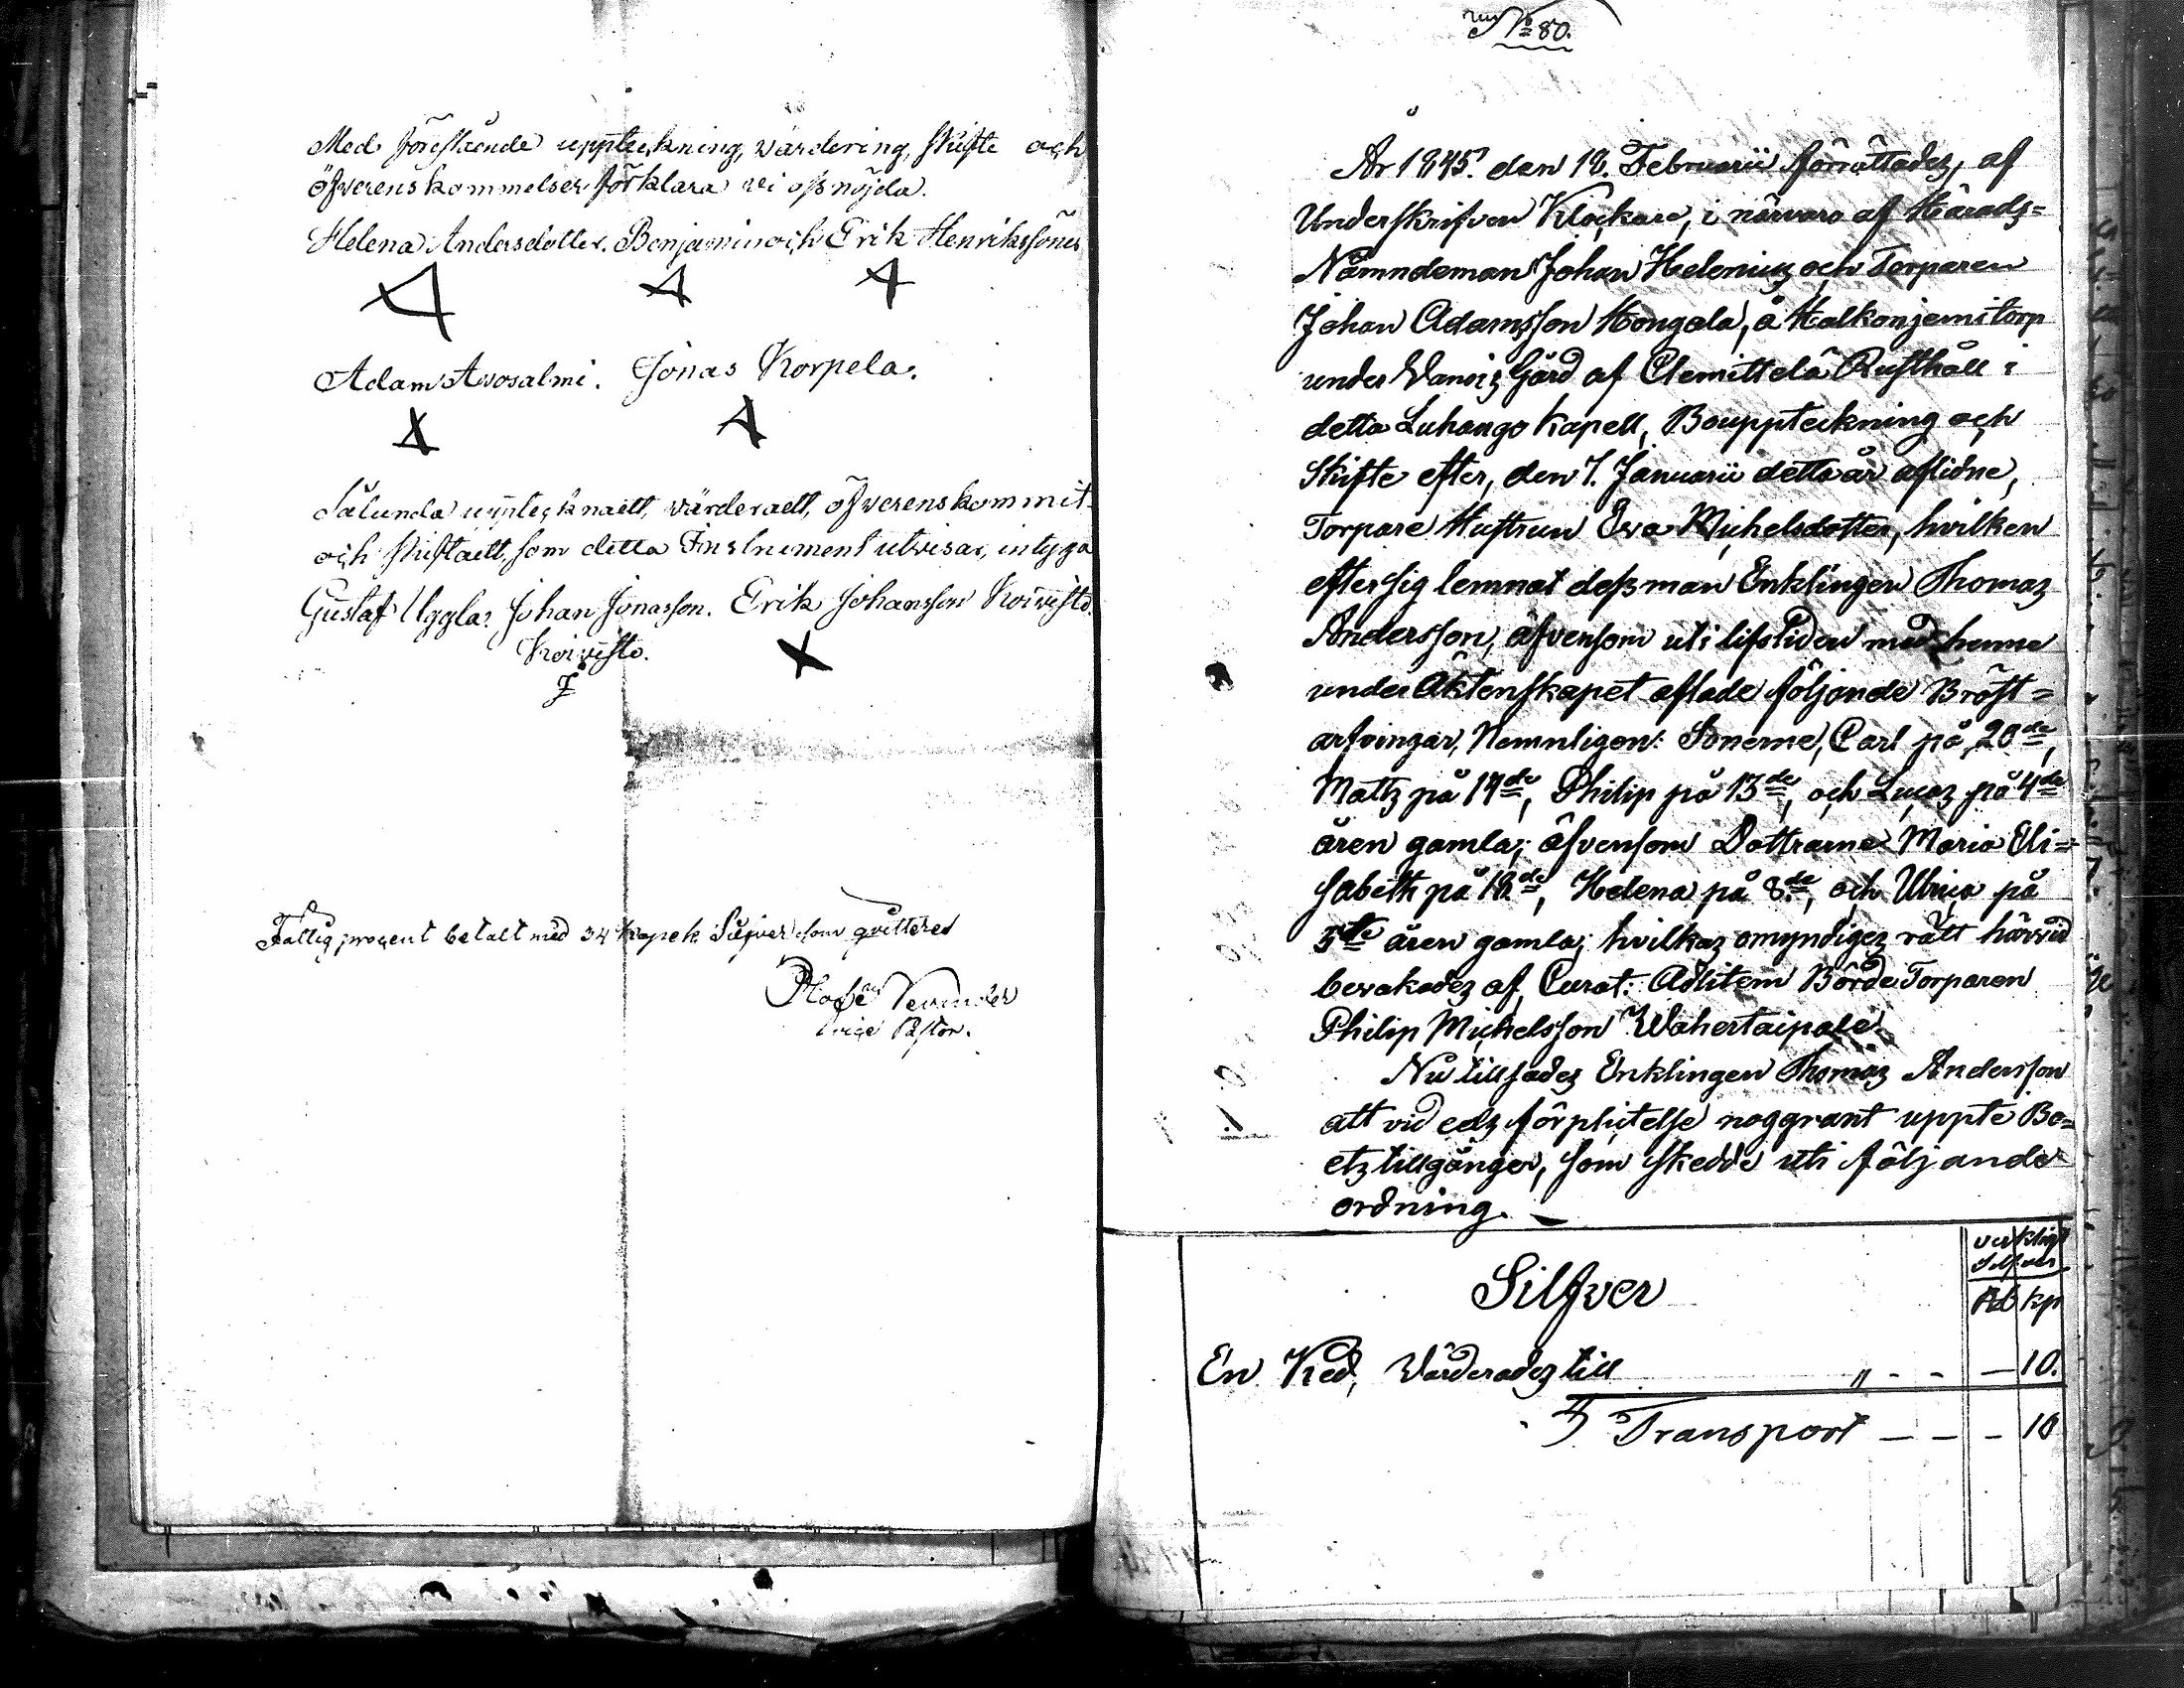 Med föreståcnde uppteckning, värdering, skifte och
öfverenskommelser förklara vi oss nöjda.
Helena Andersdotter. Benjamin och Erik Henrikssöner
Adam Avosalmi. Jonas Korpela.
Sålunda upptecknadt, värderadt, öfverenskommit
och skiftadt, som detta Instrument utvisar, intyga
Gustaf Ugglas Johan Jonasson. Erik Johansson Koivisto.
Koivisto.
Fattig procent betalt med 34 kopek Silfver som qvitteres
Vice Pastor.
No 80.
År 1845. den 18. Februarii förrättades, af
Underskrifven Klockare, i närvaro af Härads=
Nämndeman Johan Helenius och Torparen
Johan Adamsson Hongala, å Halkonjemi torp
under Wanois Gård af Clemittelä Rusthåll i
detta Luhango Kapell, Bouppteckning och
Skifte efter, den 7. Januarii detta år aflidne,
Torpare Hustrun Eva Michelsdotter, hvilken
efter sig lemnat dess man Enklingen Thomas
Andersson, äfvensom uti lifstiden med henne
under Äktenskapet aflade följande Bröst=
arfvingar, Nemnligen: Sönerne, Carl på 20de,
Matts på 14de, Philip på 13de, och Lucas på 4de
åren gamla; äfvensom Dottrarne Maria Eli=
sabeth på 18de, Helena på 8de, och Ulrica på
5te åren gamla; hvilkas omyndiges rätt härvid
bevakades af, Curat: Adlitem Börde Torparen
Philip Michelsson Wahertaipale.
Nu tillsades Enklingen Thomas Andersson
att vid eds förplictelse noggrant uppte Bo=
ets tillgånger, som skedde uti följande
ordning.
verkligt
Silfver
Silfver Rd kp
En Ked, Värderades till " - - — 10.
Transport — — - 10